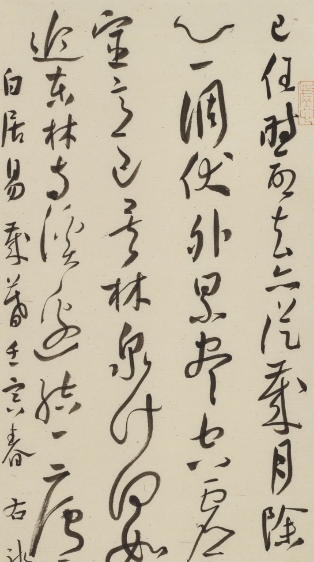 已任時命去亦從歲月除
心一調伏外累盡空虛
宦意已矣林泉計何如
近東林寺溪邊結一廬
白居易歲暮壬寅春 右